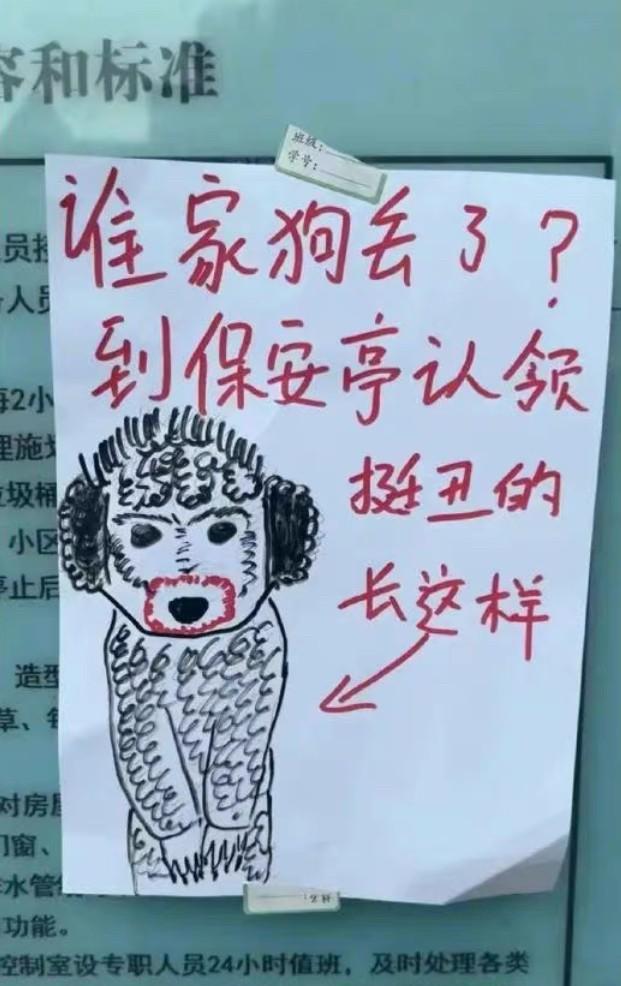 容和标准
班级：
学号：
谁家狗丢了？
到保安亭认领
挺丑的
长这样
员
人员
每2小
理施
垃圾桶
小区
停止后
造型
草、
对房屋
门窗、
水管
功能。
控制室设专职人员24小时值班，及时处理各类